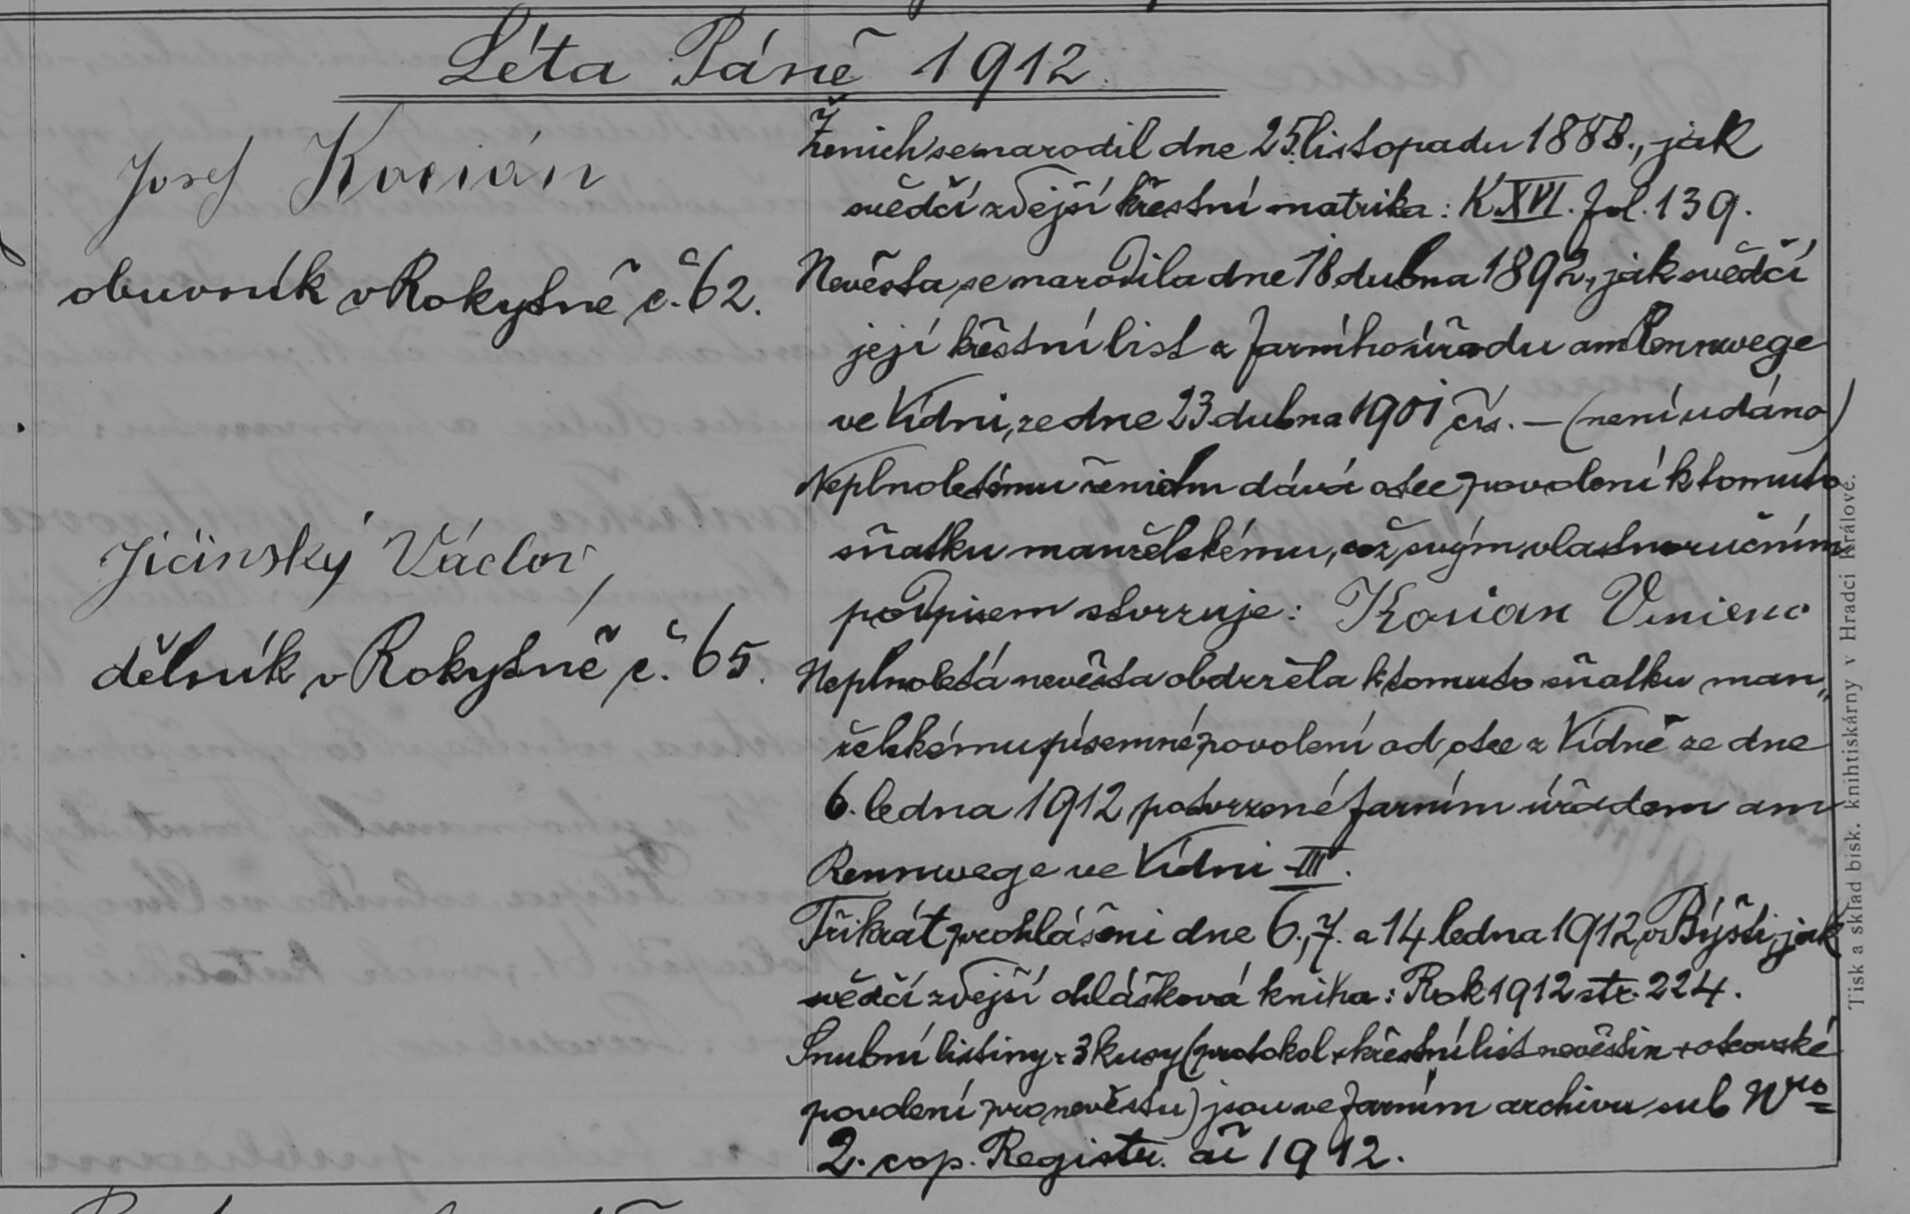 Léta Páně 1912
Josef Kocián
obuvník v Rokytně č. 62.
Jičinský Václav,
dělník v Rokytně č. 65.
Ženich se narodil dne 25. listopadu 1888., jak
svědčí zdejší křestní matrika: K XVI. fol. 139.
Nevěsta se narodila dne 18 dubna 1892, jak svědčí
její křestní list z farního úřadu am Rennwege
ve Vídni, ze dne 23 dubna 1901 čís. — (není udáno)
Neplnoletému ženichu dává otec povolení k tomuto
sňatku manželskému, což svým vlastnoručním
podpisem stvrzuje: Kocian
Neplnoletá nevěsta obdržela k tomuto sňatku man„
želskému písemné povolení od otce z Vídně ze dne
6. ledna 1912 potvrzené farním úřadem am
Rennwege ve Vídni III.
Třikrát prohlášeni dne 6., 7. a 14 ledna 1912 v Býšti, jak
svědčí zdejší ohlášková kniha: Rok 1912 str. 224.
Snubní listiny: 3 kusy (protokol + křestní list nevěstin + otcovské
povolení pro nevěstu) jsou ve farním archivu sub Nro
2. cop. Registr. aĩ 1912.
Tisk a sklad bisk. knihtiskárny v Hradci Králové.